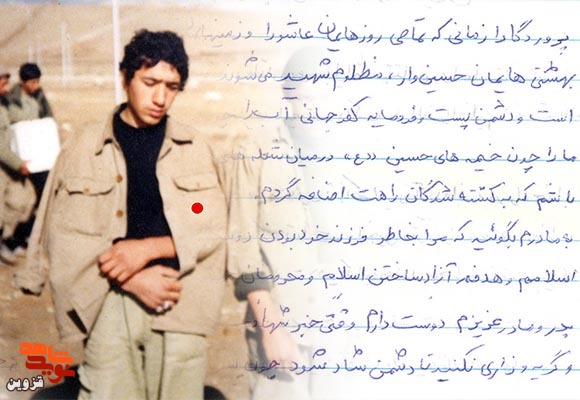 پروردگارا زمانی که تمامی روزهایمان عاشورا و زمینها
بهشتی هایمان حسین‌وار، مظلوم شهید می‌شوند
است و دشمن پست و فرومایه کفر جهانی آب را
ما را چون خیمه های حسین (ع)، در میان شعله های
باشم که به کشته شدگان راهت اضافه گردم.
به مادرم بگوئید که مرا بخاطر فرزند خرد بودن
اسلامم و هدفم آزاد ساختن اسلام و محرومان
پدر و مادر عزیزم دوست دارم وقتی خبر شهاد
و گریه و زاری نکنید تا دشمن شاد شود چون
نوید شاهد
قزوین